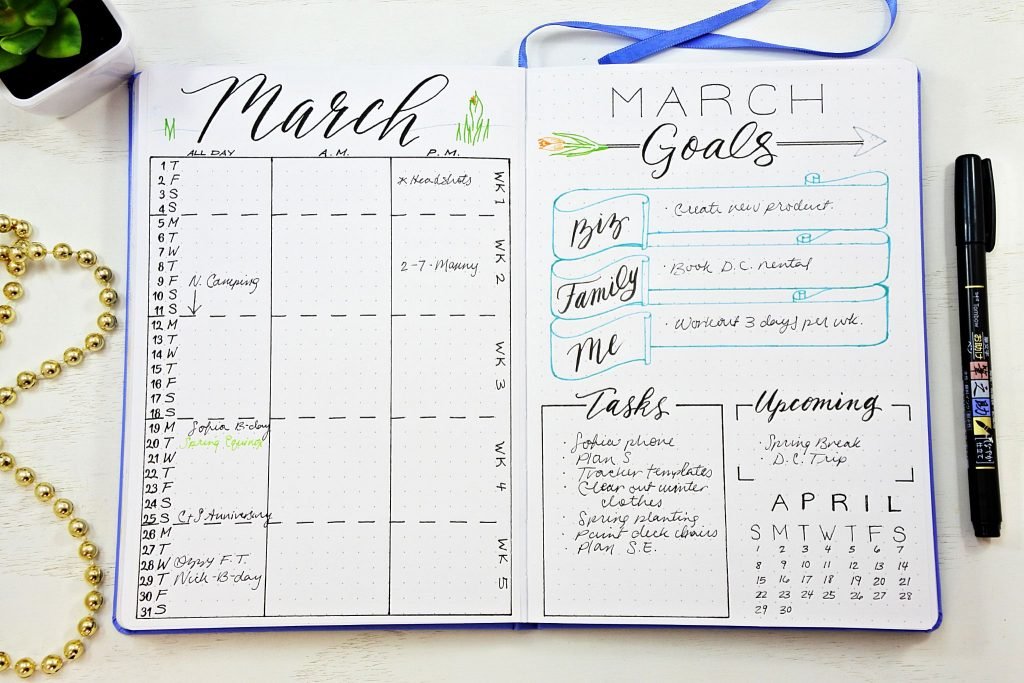 March
ALL DAY A.M. P.M.
1 T
2 F * Headshots
3 S
4 S
WK 1
5 M
6 T
7 W
8 T 2-7 · Manny
9 F N. Camping
10 S
11 S
WK 2
12 M
13 T
14 W
15 T
16 F
17 S
18 S
WK 3
19 M Sofia B-day
20 T Spring Equinox
21 W
22 T
23 F
24 S
25 S C+S Anniversary
WK 4
26 M
27 T
28 W Ozzy F.T.
29 T Nick-B-day
30 F
31 S
WK 5
MARCH
Goals
Biz
· Create new product.
Family
· Book D.C. rental
Me
· Workout 3 days per wk.
Tasks
· Sofia phone
· Plan S
· Tracker templates
· Clear out winter
clothes
· Spring planting
· Paint deck chairs
· Plan S.E.
Upcoming
· Spring Break
· D.C. Trip
APRIL
S M T W T F S
1 2 3 4 5 6 7
8 9 10 11 12 13 14
15 16 17 18 19 20 21
22 23 24 25 26 27 28
29 30
Tombow